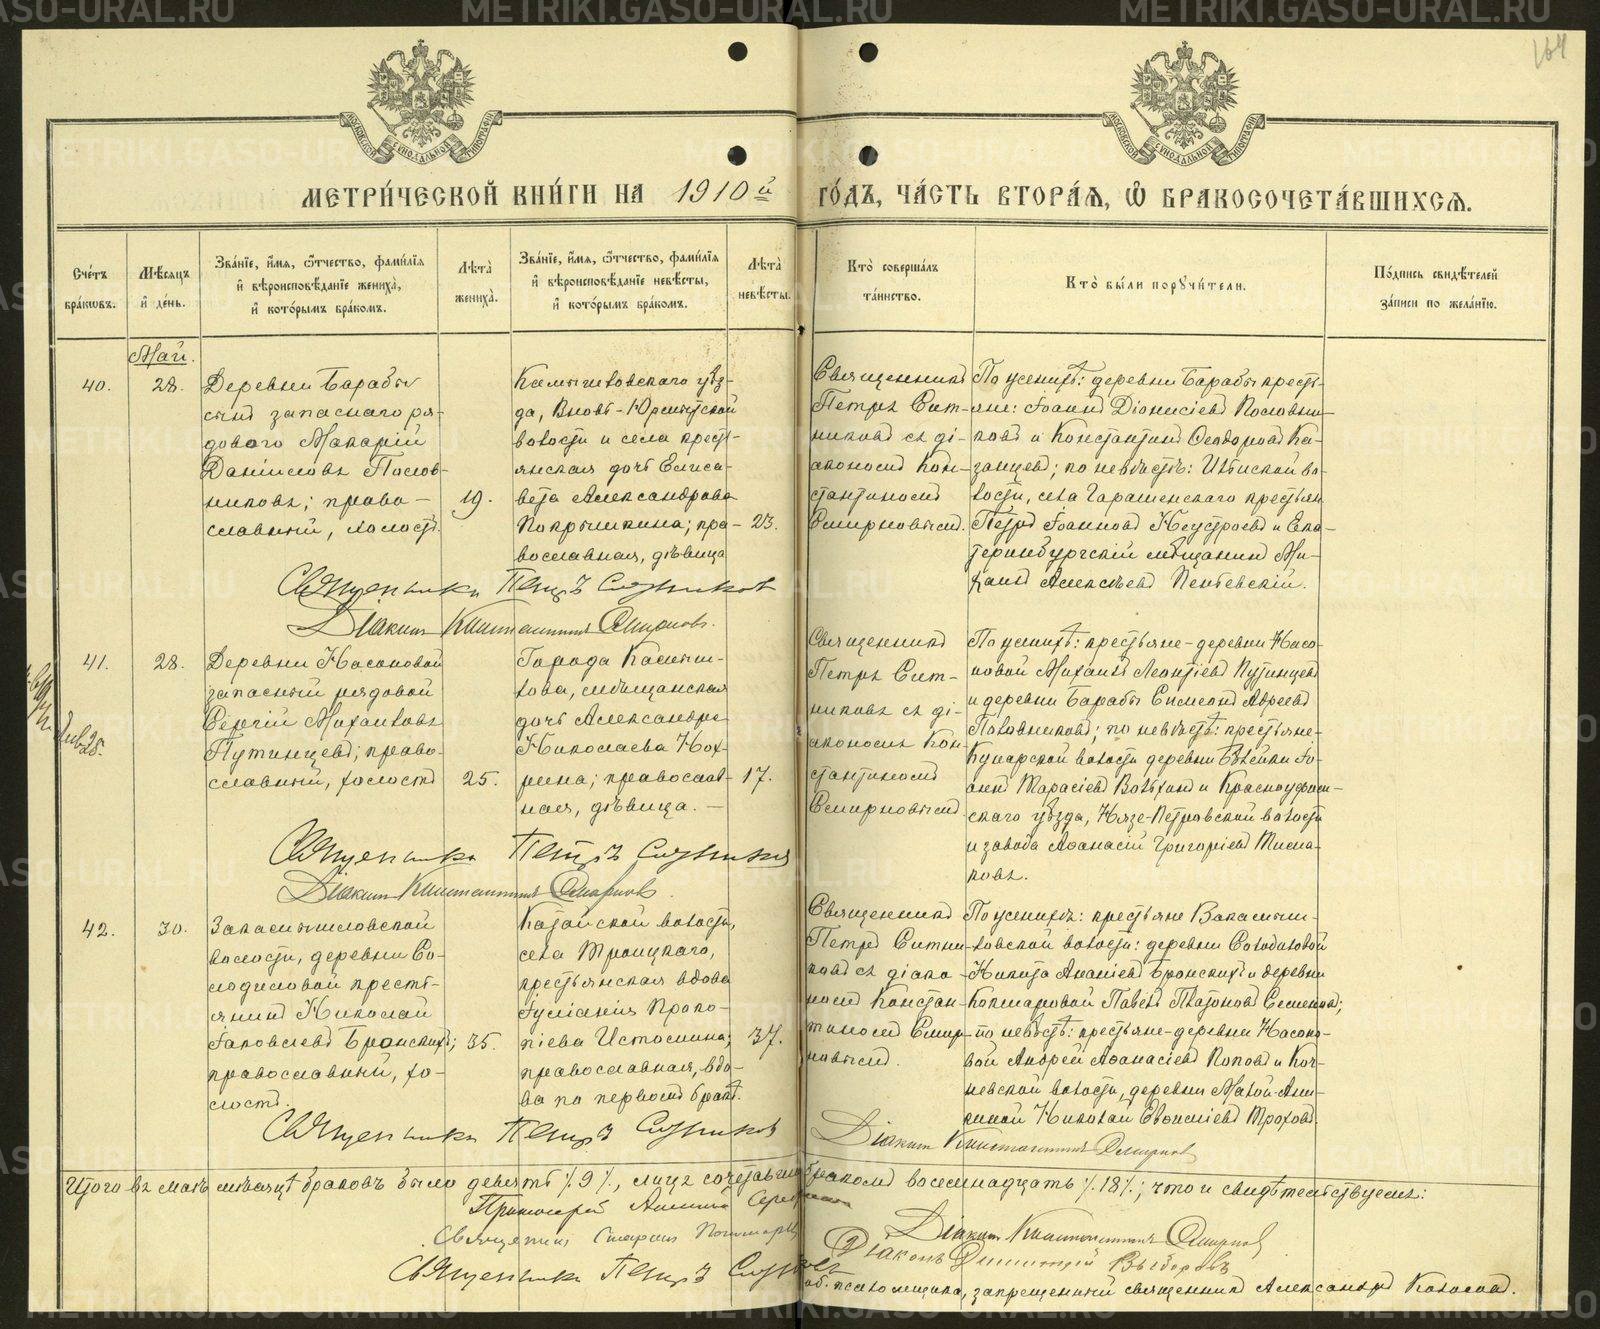 164
МЕТРИ́ЧЕСКОЙ КНИ́ГИ НА 1910й ГО́ДЪ, ЧА́СТЬ ВТОРА́Я, Ѡ БРАКОСОЧЕТА́ВШИХСЯ.
Сче́тъ бра́кѡвъ.
Мѣ́сяцъ и де́нь.
Зва́ніе, и́мя, ѻ́тчество, фами́лія
и вѣроисповѣ́даніе жениха̀,
и кото́рымъ бра́комъ.
Лѣ́та жениха̀.
Зва́ніе, и́мя, ѻ́тчество, фами́лія
и вѣроисповѣ́даніе невѣ́сты,
и кото́рымъ бра́комъ.
Лѣ́та невѣ́сты.
Кто̀ соверша́лъ та́инство.
Кто̀ бы́ли поручи́тели.
По́дпись свидѣ́телей за́писи по жела́нію.
Май.
40.
28.
Деревни Барабы
сынъ запаснаго ря-
дового Макарій
Даніиловъ Послов-
никовъ; право-
славный, холостъ.
19.
Камышловскаго уѣз-
да, Вновь-Юрмытской
волости и села кресть-
янская дочь Елиса-
вета Александрова
Покрышкина; пра-
вославная, дѣвица
23.
Священникъ
Петръ Сит-
никовъ съ ді-
акономъ Кон-
стантиномъ
Смирновымъ.
По женихѣ: деревни Барабы кресть-
яне: Іоаннъ Діонисіевъ Пословни-
ковъ и Константинъ Ѳеодоровъ Ка-
занцевъ; по невѣстѣ:
волости, села
Петръ Іоанновъ Неустроевъ и Ека-
теринбургскій мѣщанинъ Ми-
хаилъ Алексѣевъ
Священникъ Петръ Ситниковъ
Діаконъ Константинъ Смирновъ.
41.
28.
Деревни Насоновой
запасный рядовой
Сергій Михаиловъ
Путинцевъ; право-
славный, холостъ
25.
Города Камыш-
лова, мѣщанская
дочь Александра
Николаева Нох-
рина; православ-
ная, дѣвица.
17.
Священникъ
Петръ Сит-
никовъ съ ді-
акономъ Кон-
стантиномъ
Смирновымъ.
По женихѣ: крестьяне-деревни Насо-
новой Михаилъ Леонтіевъ Путинцевъ
и деревни Барабы Симеонъ Авдеевъ
по невѣстѣ: крестьяне-
волости деревни
аннъ Тарасіевъ и Красноуфим-
скаго уѣзда, Нязе-Петровской волости
и завода Аѳанасій Григоріевъ
ковъ.
Священникъ Петръ Ситниковъ
Діаконъ Константинъ Смирновъ.
42.
30.
Закамышловской
волости, деревни Со-
лодиловой кресть-
янинъ Николай
Іаковлевъ Бронскихъ;
православный, хо-
лостъ.
35.
Катайской волости,
села Троицкаго,
крестьянская вдова
Іуліанія Проко-
піева Истомина;
православная, вдо-
ва по первомъ бракѣ.
37.
Священникъ
Петръ Ситни-
ковъ съ діако-
номъ Констан-
тиномъ Смир-
новымъ.
По женихѣ: крестьяне Закамыш-
ловской волости: деревни Солодиловой
Никита Ананіевъ Бронскихъ и деревни
Кошмаровой Павелъ Платоновъ
по невѣстѣ: крестьяне-деревни Насоно-
вой Андрей Аѳанасіевъ Поповъ и Коч-
невской волости, деревни Малой-
Николай
Священникъ Петръ Ситниковъ
Діаконъ Константинъ Смирновъ
Итого въ маѣ мѣсяцѣ браковъ было девять /.9/., лицъ сочетавшихся бракомъ восемнадцать /.18/.; что и свидѣтельствуемъ:
Протоіерей
Священникъ
Священникъ Петръ Ситниковъ
Діаконъ Константинъ Смирновъ
Діаконъ Димитрій Выборовъ
об. псаломщика, запрещенный священникъ Александръ